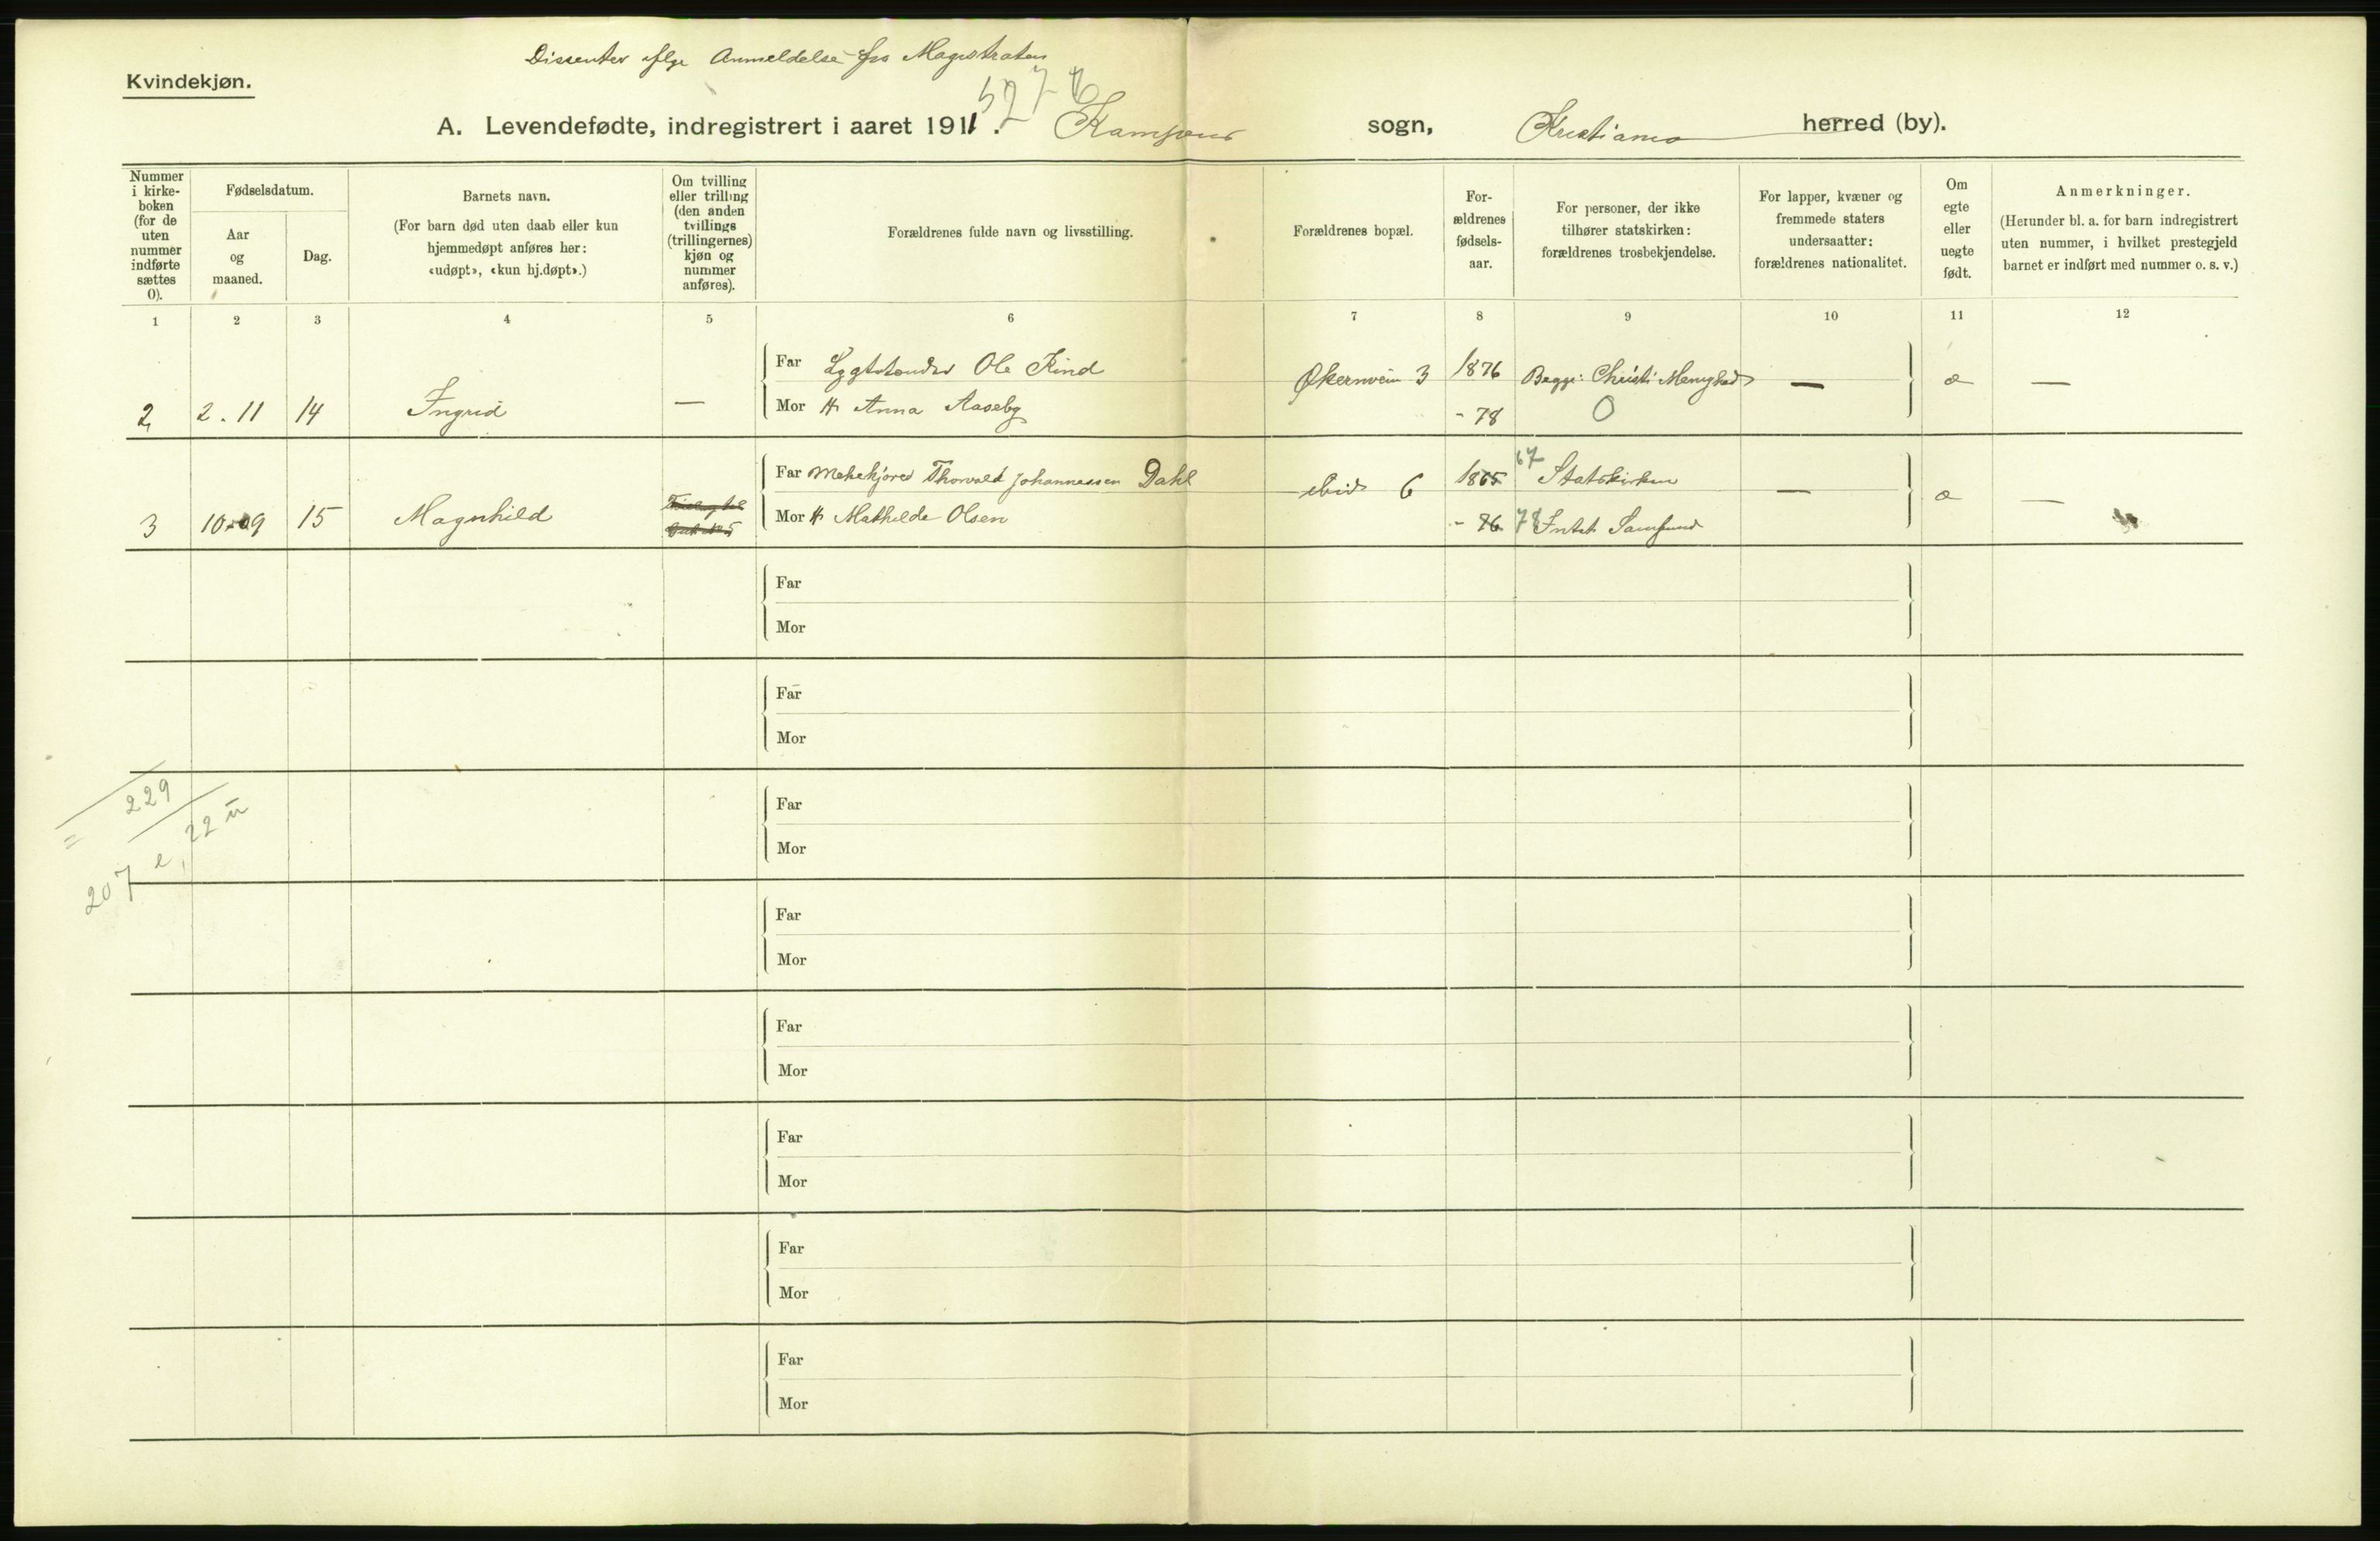 Dissenter iflge Anmeldelse fra Magistraten
Kvindekjøn.
5276
A. Levendefødte, indregistrert i aaret 1911. Kampens sogn, Kristiania herred (by).
Nummer i kirkeboken (for de uten nummer indførte sættes 0).
Fødselsdatum.
Aar og maaned.
Dag.
Barnets navn.
(For barn død uten daab eller kun hjemmedøpt anføres her: «udøpt», «kun hj.døpt».)
Om tvilling eller trilling (den anden tvillings (trillingernes) kjøn og nummer anføres).
Forældrenes fulde navn og livsstilling.
Forældrenes bopæl.
Forældrenes fødselsaar.
For personer, der ikke tilhører statskirken: forældrenes trosbekjendelse.
For lapper, kvæner og fremmede staters undersaatter: forældrenes nationalitet.
Om egte eller uegte født.
Anmerkninger.
(Herunder bl. a. for barn indregistrert uten nummer, i hvilket prestegjeld barnet er indført med nummer o. s. v.)
1 2 3 4 5 6 7 8 9 10 11 12
Far Lygttænder Ole Kind Økernvein 3 1876 Begge: Christi Menighed — æ —
2 2.11 14 Ingrid — Mor H Anna Aaseby - 78 0
Far Melkekjører Thorvald Johannessen Dahl ibid 6 1865 67 Statskirken — æ —
3 10.09 15 Magnhild Mor H Mathilde Olsen - 76 78 Intet Samfund
Far
Mor
Far
Mor
= 229
22 u
207 e,
Far
Mor
Far
Mor
Far
Mor
Far
Mor
Far
Mor
Far
Mor